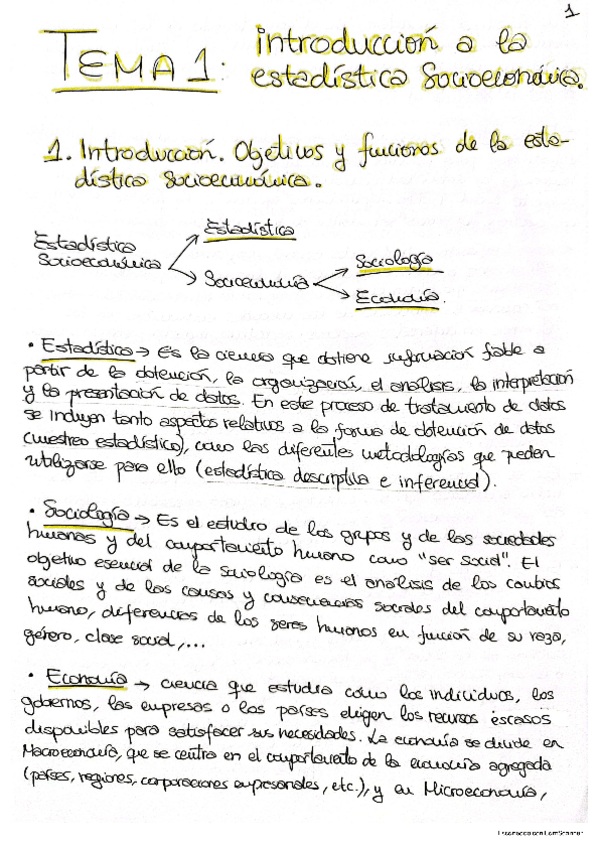 1
TEMA 1: introducción a la
estadística Socioeconómica.
1. Introducción. Objetivos y funciones de la esta-
dística Socioeconómica.
Estadística
Socioeconómica
Estadística
Socioeconomía
Sociología
Economía.
• Estadística → Es la ciencia que obtiene información fiable a
partir de la obtención, la organización, el análisis, la interpretación
y la presentación de datos. En este proceso de tratamiento de datos
se incluyen tanto aspectos relativos a la forma de obtención de datos
(muestreo estadístico), como las diferentes metodologías que pueden
utilizarse para ello (estadística descriptiva e inferencial).
• Sociología → Es el estudio de los grupos y de las sociedades
humanas y del comportamiento humano como "ser social". El
objetivo esencial de la sociología es el análisis de los cambios
sociales y de las causas y consecuencias sociales del comportamiento
humano, diferencias de los seres humanos en función de su raza,
género, clase social,...
• Economía → ciencia que estudia cómo los individuos, los
gobiernos, las empresas o los países eligen los recursos escasos
disponibles para satisfacer sus necesidades. La economía se divide en
Macroeconomía, que se centra en el comportamiento de la economía agregada
(países, regiones, corporaciones empresariales, etc.), y en Microeconomía,
Escaneado con CamScanner